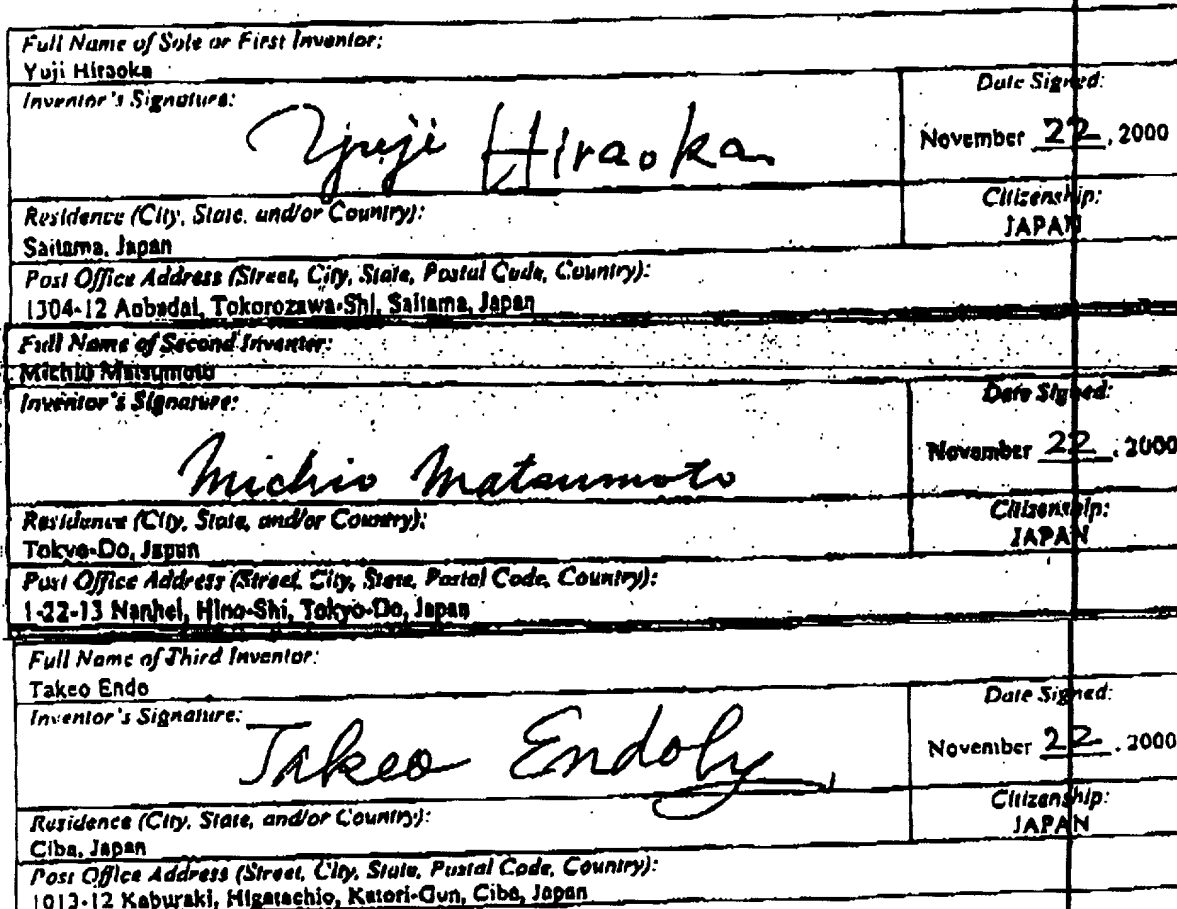 Full Name of Sole or First Inventor:
Yuji Hiraoka
Inventor's Signature:
Date Signed:
Yuji Hiraoka
November 22, 2000
Residence (City, State, and/or Country):
Citizenship:
Saitama, Japan
JAPAN
Post Office Address (Street, City, State, Postal Code, Country):
1304-12 Aobadai, Tokorozawa-Shi, Saitama, Japan
Full Name of Second Inventor:
Michio Matsumoto
Inventor's Signature:
Date Signed:
Michio Matsumoto
November 22, 2000
Residence (City, State, and/or Country):
Citizenship:
Tokyo-Do, Japan
JAPAN
Post Office Address (Street, City, State, Postal Code, Country):
1-22-13 Nanhei, Hino-Shi, Tokyo-Do, Japan
Full Name of Third Inventor:
Takeo Endo
Inventor's Signature:
Date Signed:
Takeo Endo
November 22, 2000
Residence (City, State, and/or Country):
Citizenship:
Ciba, Japan
JAPAN
Post Office Address (Street, City, State, Postal Code, Country):
1013-12 Kaburaki, Higatachio, Katori-Gun, Ciba, Japan